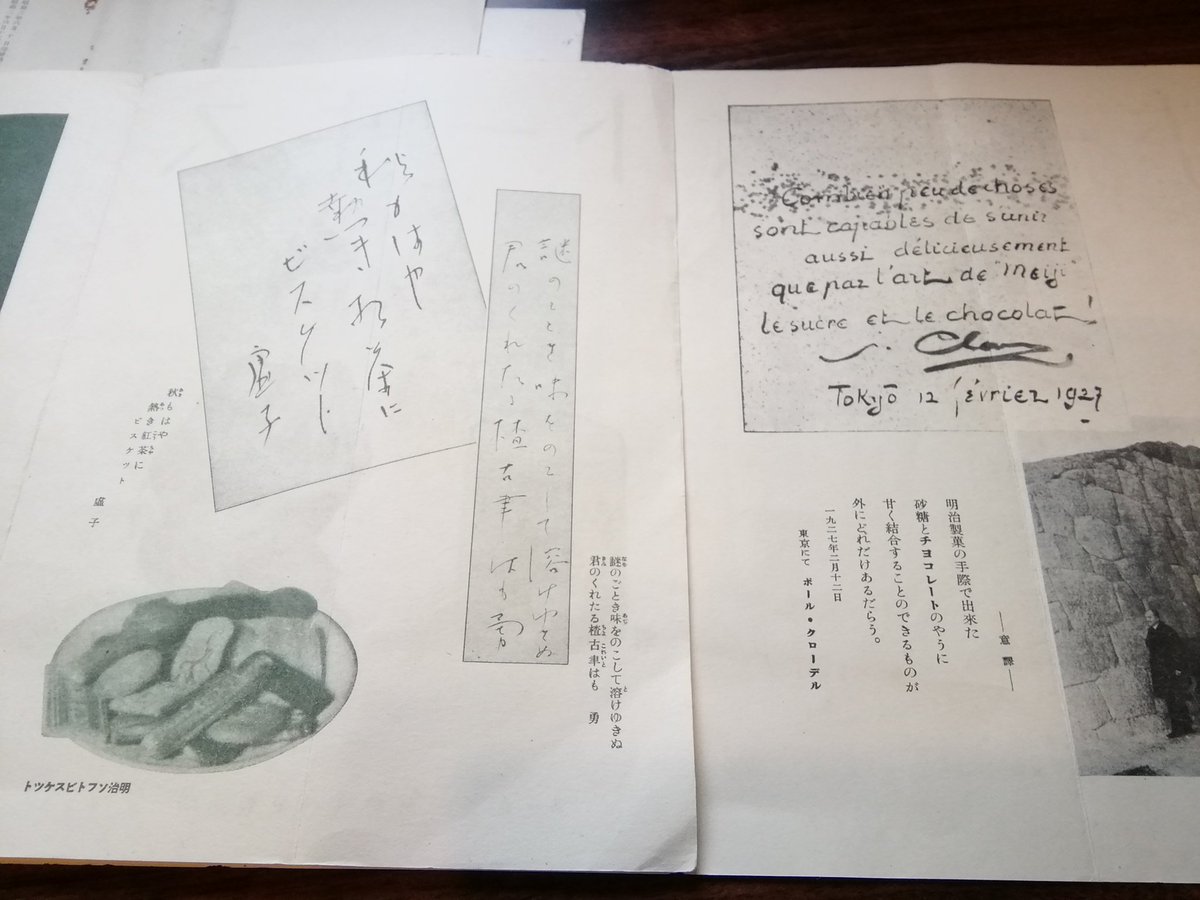 秋もはや
熱き紅茶に
ビスケット
虚子
秋もはや
熱き紅茶に
ビスケツト
虚子
謎のごとき味をのこして溶けゆきぬ
君のくれたる楂古聿はも 勇
謎のごとき味をのこして溶けゆきぬ
君のくれたる楂古聿はも 勇
明治ソフトビスケツト
Combien peu de choses
sont capables de s'unir
aussi délicieusement
que par l'art de "Meiji"
le sucre et le chocolat!
Tokyō 12 février 1927
――意譯――
明治製菓の手際で出來た
砂糖とチヨコレートのやうに
甘く結合することのできるものが
外にどれだけあるだらう。
一九二七年二月十二日
東京にて ポール・クローデル